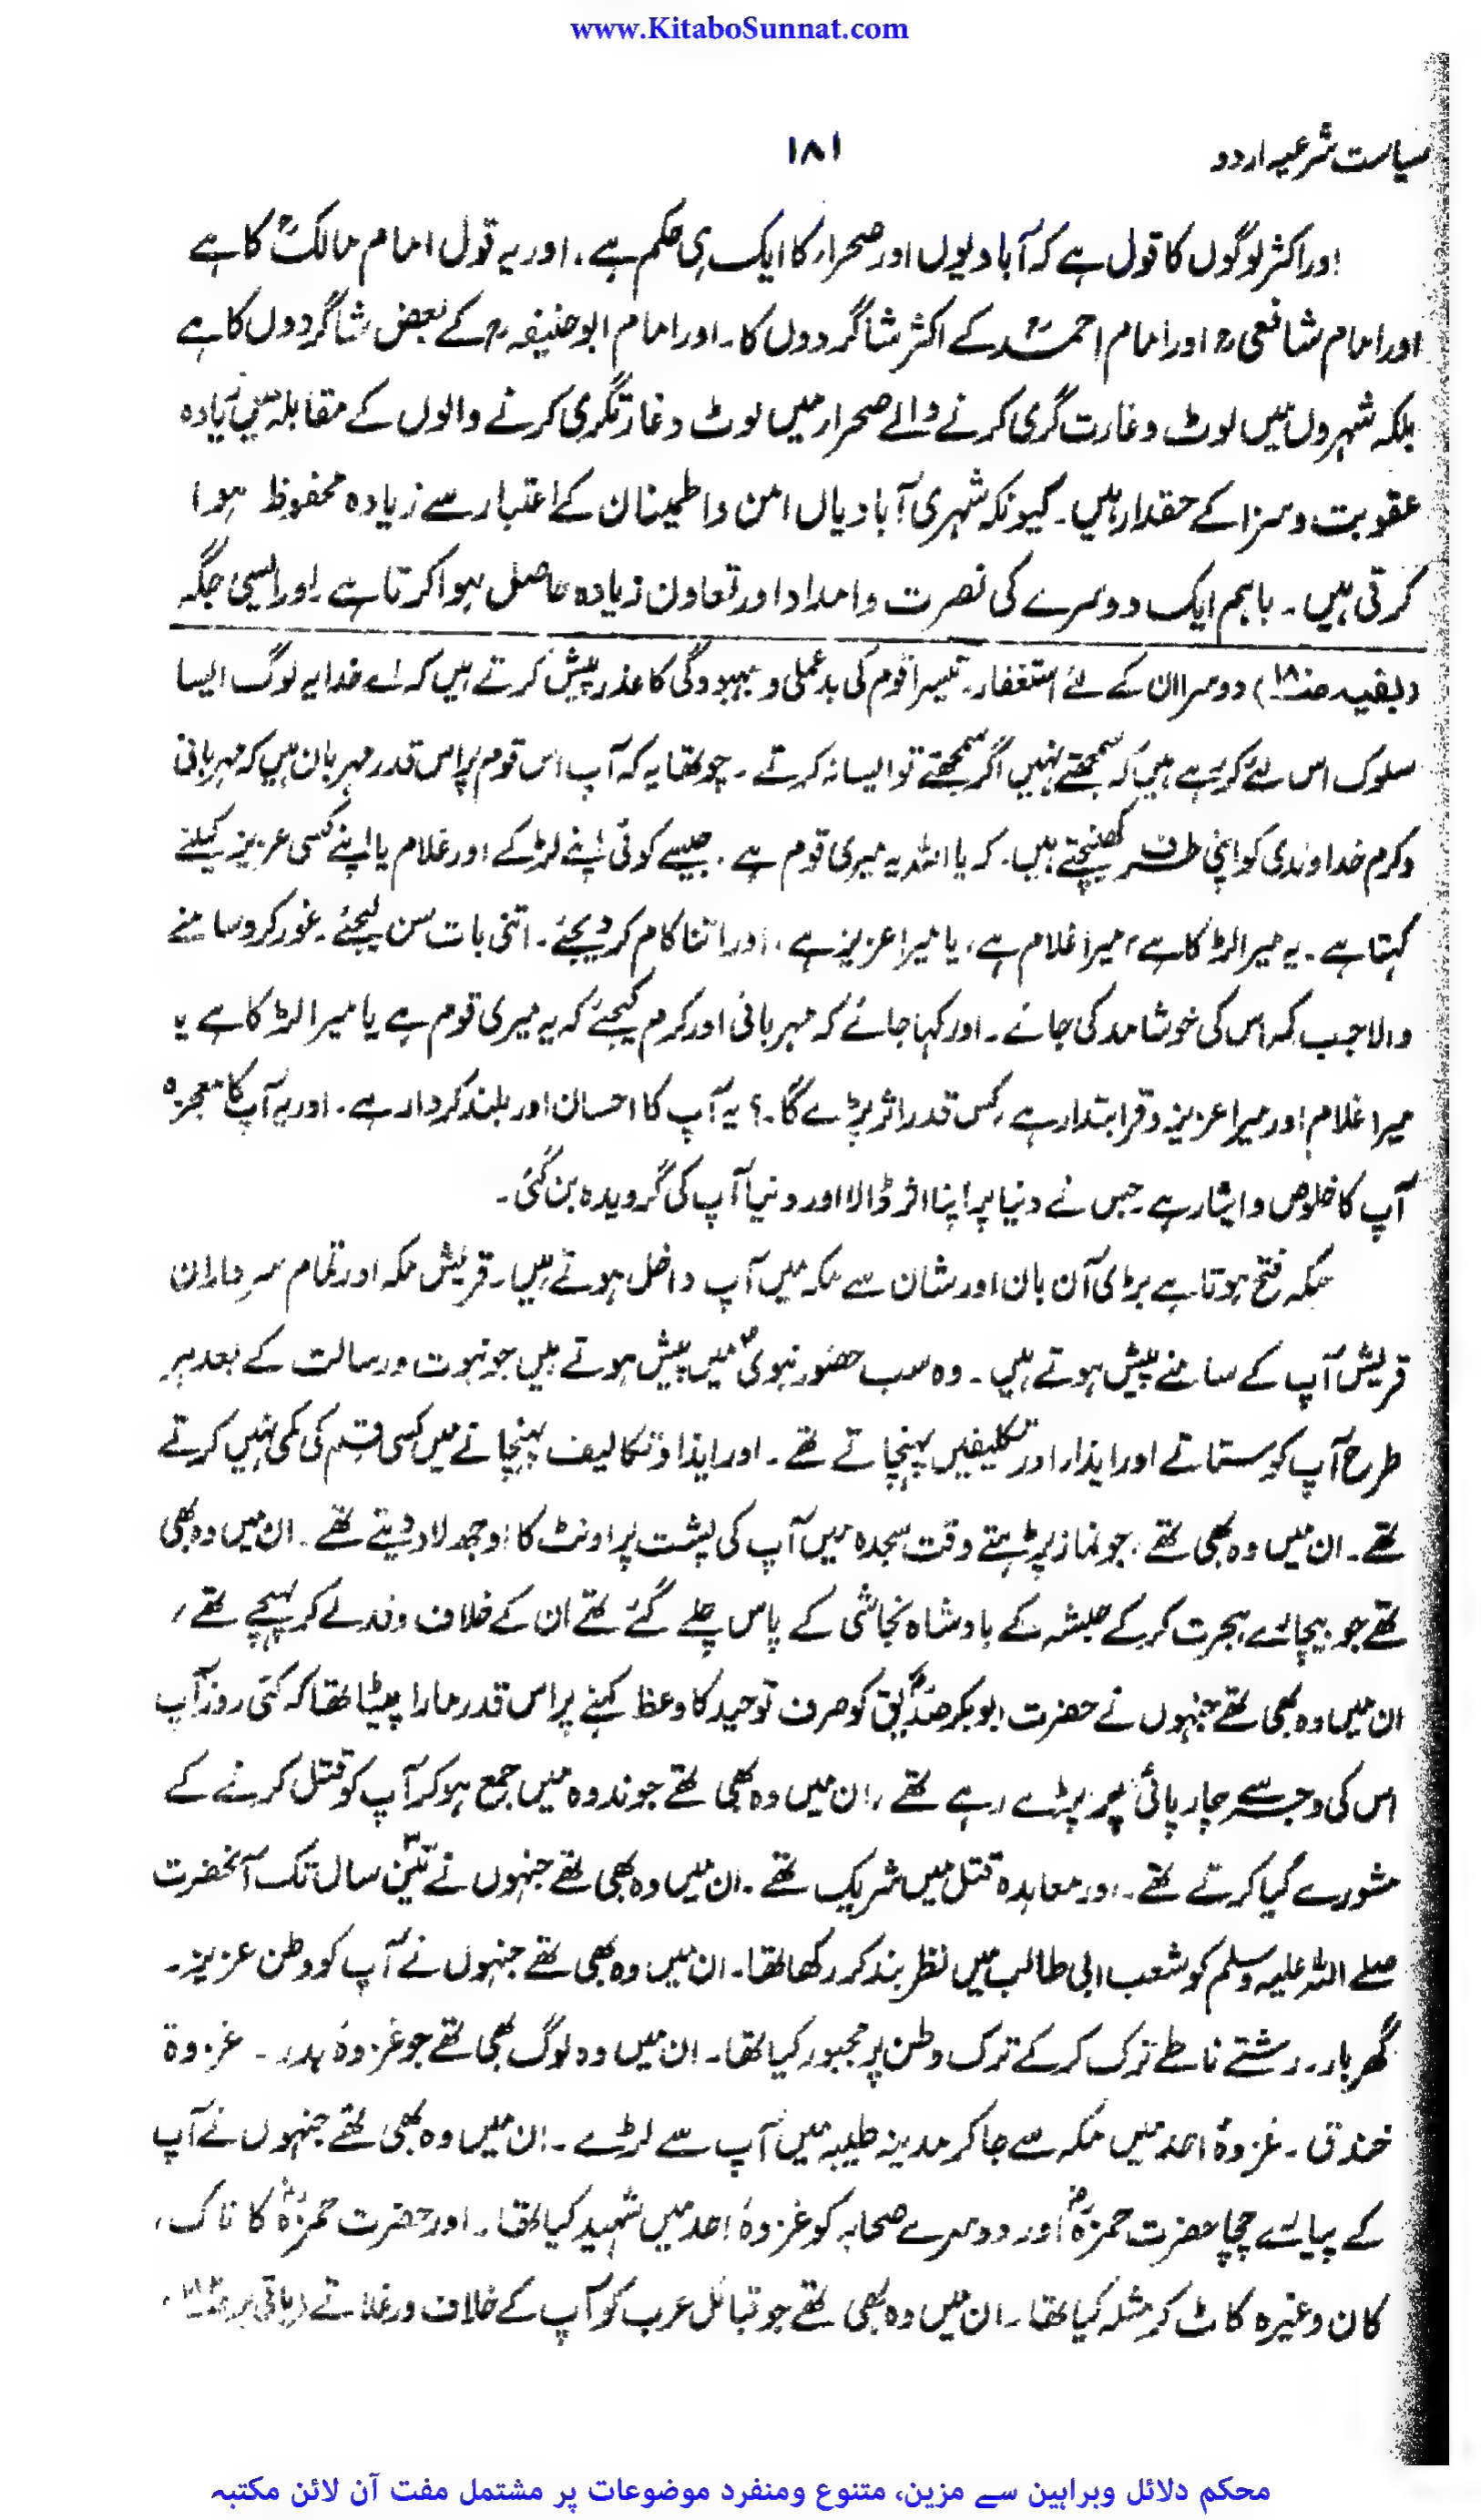 www.KitaboSunnat.com
سیاست شرعیہ اردو
۱۸۱
اور اکثر لوگوں کا قول ہے کہ آبادیوں اور صحراء کا ایک ہی حکم ہے. اور یہ قول امام مالکؒ کا ہے
اور امام شافعیؒ اور امام احمدؒ کے اکثر شاگردوں کا۔ اور امام ابو حنیفہؒ کے بعض شاگردوں کا ہے
بلکہ شہروں میں لوٹ و غارت گری کرنے والے صحراء میں لوٹ و غارتگری کرنے والوں کے مقابلہ میں زیادہ
عقوبت و سزا کے حقدار ہیں۔ کیونکہ شہری آبادیاں امن و اطمینان کے اعتبار سے زیادہ محفوظ ہوا
کرتی ہیں۔ باہم ایک دوسرے کی نصرت و امداد اور تعاون زیادہ حاصل ہوا کرتا ہے اور ایسی جگہ
(بقیہ صفحہ ۱۸۰) دوسرا ان کے لئے استغفار۔ تیسرا قوم کی بد عملی و بیہودگی کا عذر پیش کرتے ہیں کہ اے خدا یہ لوگ ایسا
سلوک اس لئے کر رہے ہیں کہ سمجھتے نہیں اگر سمجھتے تو ایسا نہ کرتے۔ چوتھا یہ کہ آپ اس قوم پر اس قدر مہربان ہیں کہ مہربانی
و کرم خداوندی کو اپنی طرف کھینچتے ہیں. کہ یا اللہ یہ میری قوم ہے. جیسے کوئی اپنے لڑکے اور غلام یا اپنے کسی عزیز کیلئے
کہتا ہے۔ یہ میرا لڑکا ہے، میرا غلام ہے، یا میرا عزیز ہے، اور اتنا کام کر دیجئے۔ اتنی بات سن لیجئے۔ غور کرو سامنے
والا جب کہ اس کی خوشامد کی جائے۔ اور کہا جائے کہ مہربانی اور کرم کیجئے کہ یہ میری قوم ہے یا میرا لڑکا ہے یا
میرا غلام اور میرا عزیز و قرابتدار ہے، کس قدر اثر پڑے گا۔؟ یہ آپ کا احسان اور بلند کردار ہے. اور یہ آپ کا معجزہ
آپ کا خلوص و ایثار ہے جس نے دنیا پر اپنا اثر ڈالا اور دنیا آپ کی گرویدہ بن گئی۔
مکہ فتح ہوتا ہے بڑی آن بان اور شان سے مکہ میں آپ داخل ہوتے ہیں۔ قریش مکہ اور تمام سرداران
قریش آپ کے سامنے پیش ہوتے ہیں۔ وہ سب حضور نبویؐ میں پیش ہوتے ہیں جو نبوت و رسالت کے بعد ہر
طرح آپ کو ستاتے اور ایذاء اور تکلیفیں پہنچاتے تھے۔ اور ایذا و تکالیف پہنچانے میں کسی قسم کی کمی نہیں کرتے
تھے۔ ان میں وہ بھی تھے، جو نماز پڑہتے وقت سجدہ میں آپ کی پشت پر اونٹ کا اوجھ لا دیتے تھے۔ ان میں وہ بھی
تھے جو بیچارے ہجرت کر کے حبشہ کے بادشاہ نجاشی کے پاس چلے گئے تھے ان کے خلاف وفد لے کر پہنچے تھے،
ان میں وہ بھی تھے جنہوں نے حضرت ابو بکر صدیقؓ کو صرف توحید کا وعظ کہنے پر اس قدر مارا پیٹا تھا کہ کئی روز آپ
اس کی وجہ سے چارپائی پر پڑے رہے تھے، ان میں وہ بھی تھے جو ندوہ میں جمع ہو کر آپ کو قتل کرنے کے
مشورے کیا کرتے تھے۔ اور معاہدہ قتل میں شریک تھے۔ ان میں وہ بھی تھے جنہوں نے تین سال تک آنحضرت
صلے اللہ علیہ وسلم کو شعب ابی طالب میں نظر بند کر رکھا تھا۔ ان میں وہ بھی تھے جنہوں نے آپ کو وطن عزیز۔
گھر بار۔ رشتے ناطے ترک کر کے ترک وطن پر مجبور کیا تھا۔ ان میں وہ لوگ بھی تھے جو غزوۂ بدر۔ غزوۃ
خندق۔ غزوۂ احد میں مکہ سے جا کر مدینہ طیبہ میں آپ سے لڑے۔ ان میں وہ بھی تھے جنہوں نے آپ
کے پیارے چچا حضرت حمزہؓ اور دوسرے صحابہ کو غزوۂ احد میں شہید کیا تھا۔ اور حضرت حمزہؓ کا ناک،
کان وغیرہ کاٹ کر مثلہ کیا تھا۔ ان میں وہ بھی تھے جو قبائل عرب کو آپ کے خلاف ورغلاتے (باقی بر
محکم دلائل وبراہین سے مزین، متنوع ومنفرد موضوعات پر مشتمل مفت آن لائن مکتبہ